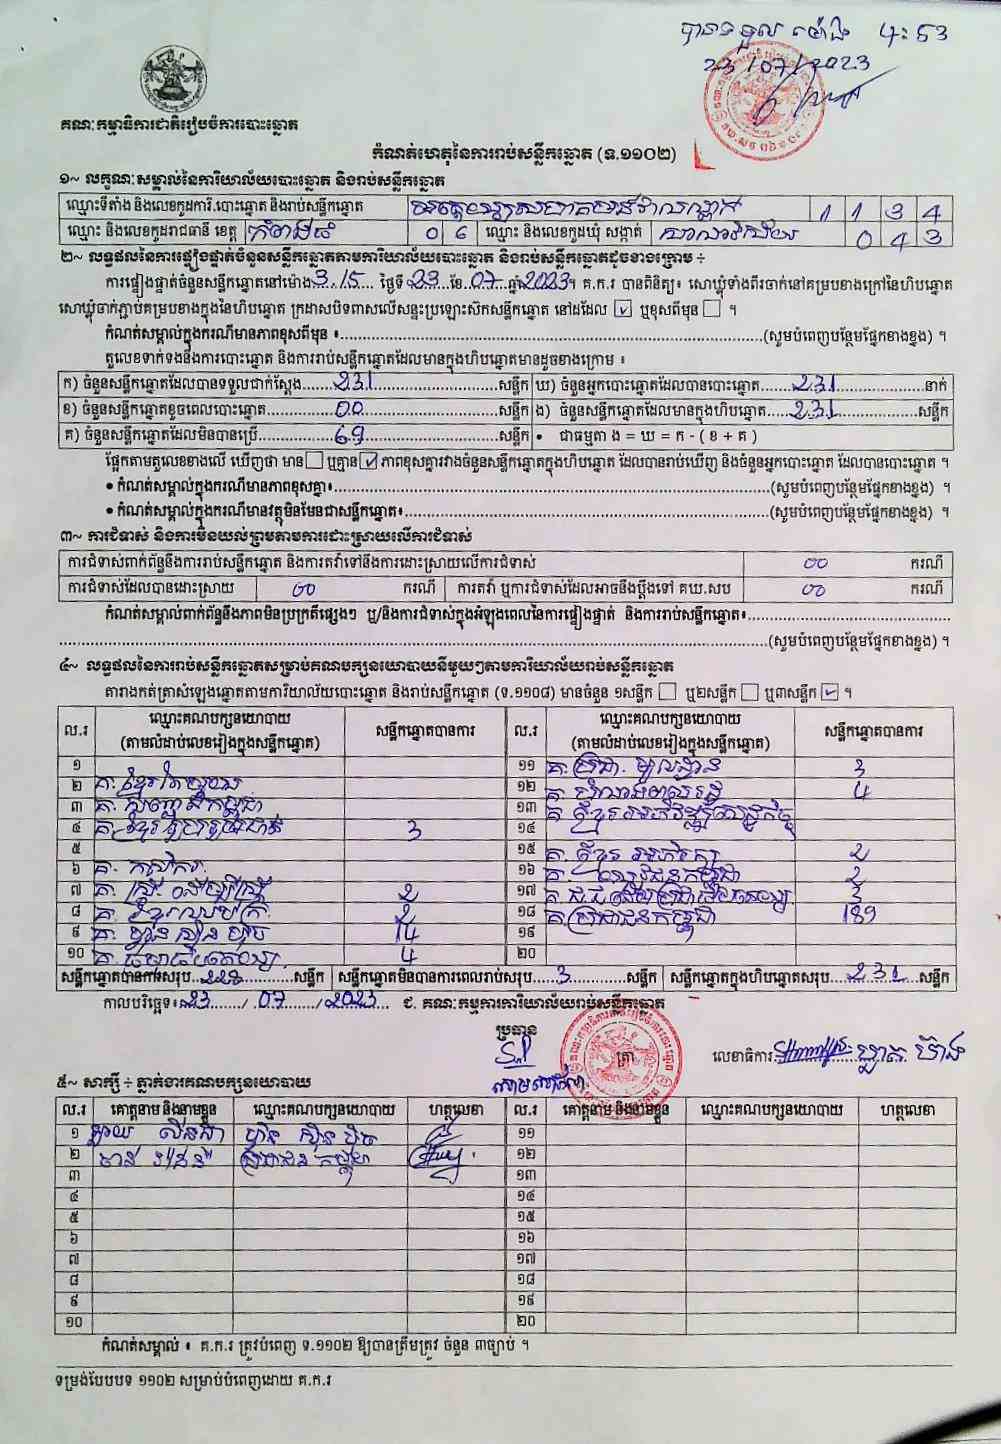 បានទទួល ម៉ោង ៤:53
23/07/2023
គណៈកម្មាធិការជាតិរៀបចំការបោះឆ្នោត
កំណត់ហេតុនៃការរាប់សន្លឹកឆ្នោត (ទ.១១០២)
១~ លក្ខណៈសម្គាល់នៃការិយាល័យបោះឆ្នោត និងរាប់សន្លឹកឆ្នោត
ឈ្មោះទីតាំង និងលេខកូដការិ.បោះឆ្នោត និងរាប់សន្លឹកឆ្នោត 1 1 3 4
ឈ្មោះ និងលេខកូដរាជធានី ខេត្ត កំពង់ធំ 0 6 ឈ្មោះ និងលេខកូដឃុំ សង្កាត់ សាលាវិស័យ 0 4 3
២~ លទ្ធផលនៃការផ្ទៀងផ្ទាត់ចំនួនសន្លឹកឆ្នោតតាមការិយាល័យបោះឆ្នោត និងរាប់សន្លឹកឆ្នោតដូចខាងក្រោម ÷
ការផ្ទៀងផ្ទាត់ចំនួនសន្លឹកឆ្នោតនៅម៉ោង 3:15 ថ្ងៃទី 23 ខែ 07 ឆ្នាំ 2023។ គ.ក.រ បានពិនិត្យ៖ សោឃ្លុំទាំងពីរចាក់នៅគម្របខាងក្រៅនៃហិបឆ្នោត
សោឃ្លុំចាក់ភ្ជាប់គម្របខាងក្នុងនៃហិបឆ្នោត ក្រដាសបិទពាសលើសន្ទះប្រឡោះស៊កសន្លឹកឆ្នោត នៅដដែល ☑ ឬខុសពីមុន ☐ ។
កំណត់សម្គាល់ក្នុងករណីមានភាពខុសពីមុន ៖ (សូមបំពេញបន្ថែមផ្នែកខាងខ្នង) ។
តួលេខទាក់ទងនឹងការបោះឆ្នោត និងការរាប់សន្លឹកឆ្នោតដែលមានក្នុងហិបឆ្នោតមានដូចខាងក្រោម ៖
ក) ចំនួនសន្លឹកឆ្នោតដែលបានទទួលជាក់ស្តែង 231 សន្លឹក ឃ) ចំនួនអ្នកបោះឆ្នោតដែលបានបោះឆ្នោត 231 នាក់
ខ) ចំនួនសន្លឹកឆ្នោតខូចពេលបោះឆ្នោត 00 សន្លឹក ង) ចំនួនសន្លឹកឆ្នោតដែលមានក្នុងហិបឆ្នោត 231 សន្លឹក
គ) ចំនួនសន្លឹកឆ្នោតដែលមិនបានប្រើ 69 សន្លឹក • ជាធម្មតា ង = ឃ = ក - ( ខ + គ )
ផ្អែកតាមតួលេខខាងលើ ឃើញថា មាន ☐ ឬគ្មាន ☑ ភាពខុសគ្នារវាងចំនួនសន្លឹកឆ្នោតក្នុងហិបឆ្នោត ដែលបានរាប់ឃើញ និងចំនួនអ្នកបោះឆ្នោត ដែលបានបោះឆ្នោត ។
• កំណត់សម្គាល់ក្នុងករណីមានភាពខុសគ្នា៖ (សូមបំពេញបន្ថែមផ្នែកខាងខ្នង) ។
• កំណត់សម្គាល់ក្នុងករណីមានវត្ថុមិនមែនជាសន្លឹកឆ្នោត៖ (សូមបំពេញបន្ថែមផ្នែកខាងខ្នង) ។
៣~ ការជំទាស់ និងការមិនយល់ព្រមតាមការដោះស្រាយលើការជំទាស់
ការជំទាស់ពាក់ព័ន្ធនឹងការរាប់សន្លឹកឆ្នោត និងការតវ៉ាទៅនឹងការដោះស្រាយលើការជំទាស់ 00 ករណី
ការជំទាស់ដែលបានដោះស្រាយ 00 ករណី ការតវ៉ា ឬការជំទាស់ដែលអាចនឹងប្តឹងទៅ គឃ.សប 00 ករណី
កំណត់សម្គាល់ពាក់ព័ន្ធនឹងភាពមិនប្រក្រតីផ្សេងៗ ឬ/និងការជំទាស់ក្នុងអំឡុងពេលនៃការផ្ទៀងផ្ទាត់ និងការរាប់សន្លឹកឆ្នោត៖
(សូមបំពេញបន្ថែមផ្នែកខាងខ្នង) ។
៤~ លទ្ធផលនៃការរាប់សន្លឹកឆ្នោតសម្រាប់គណបក្សនយោបាយនីមួយៗតាមការិយាល័យរាប់សន្លឹកឆ្នោត
តារាងកត់ត្រាសំឡេងឆ្នោតតាមការិយាល័យបោះឆ្នោត និងរាប់សន្លឹកឆ្នោត (ទ.១១០៨) មានចំនួន ១សន្លឹក ☐ ឬ២សន្លឹក ☐ ឬ៣សន្លឹក ☑ ។
ល.រ ឈ្មោះគណបក្សនយោបាយ (តាមលំដាប់លេខរៀងក្នុងសន្លឹកឆ្នោត) សន្លឹកឆ្នោតបានការ ល.រ ឈ្មោះគណបក្សនយោបាយ (តាមលំដាប់លេខរៀងក្នុងសន្លឹកឆ្នោត) សន្លឹកឆ្នោតបានការ
១ ១១ 3
២ ១២ 4
៣ ១៣
៤ 3 ១៤
៥ ១៥ គ. ខ្មែរ 2
៦ គ. កសិករ ១៦ 2
៧ 2 ១៧ 3
៨ 2 ១៨ គ.ប្រជាជនកម្ពុជា 189
៩ គ. ហ្វ៊ុនស៊ិនប៉ិច 14 ១៩
១០ 4 ២០
សន្លឹកឆ្នោតបានការសរុប 228 សន្លឹក សន្លឹកឆ្នោតមិនបានការពេលរាប់សរុប 3 សន្លឹក សន្លឹកឆ្នោតក្នុងហិបឆ្នោតសរុប 231 សន្លឹក
កាលបរិច្ឆេទ៖ 23 / 07 / 2023 ជ. គណៈកម្មការការិយាល័យរាប់សន្លឹកឆ្នោត
ប្រធាន
ត្រា
លេខាធិការ
៥~ សាក្សី ÷ ភ្នាក់ងារគណបក្សនយោបាយ
ល.រ គោត្តនាម និងនាមខ្លួន ឈ្មោះគណបក្សនយោបាយ ហត្ថលេខា ល.រ គោត្តនាម និងនាមខ្លួន ឈ្មោះគណបក្សនយោបាយ ហត្ថលេខា
១ ហ្វ៊ុន ស៊ិន ប៉ិច ១១
២ ប្រជាជនកម្ពុជា ១២
៣ ១៣
៤ ១៤
៥ ១៥
៦ ១៦
៧ ១៧
៨ ១៨
៩ ១៩
១០ ២០
កំណត់សម្គាល់ ៖ គ.ក.រ ត្រូវបំពេញ ទ.១១០២ ឱ្យបានត្រឹមត្រូវ ចំនួន ៣ច្បាប់ ។
ទម្រង់បែបបទ ១១០២ សម្រាប់បំពេញដោយ គ.ក.រ